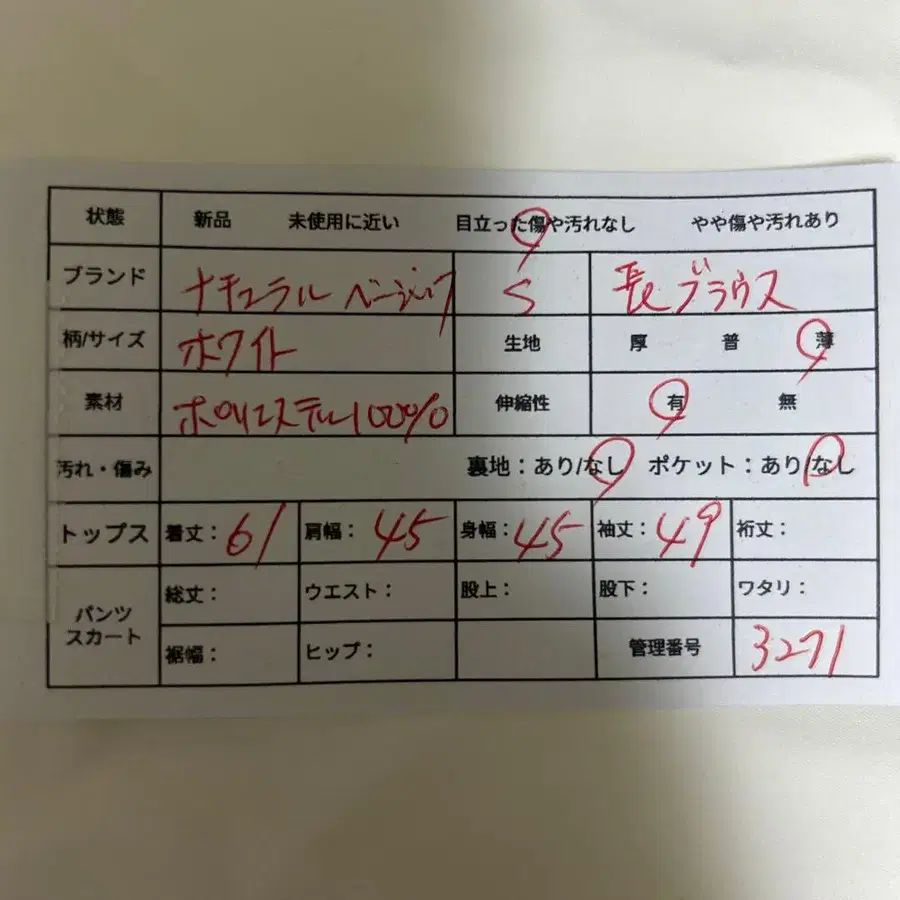 状態 新品 未使用に近い 目立った傷や汚れなし やや傷や汚れあり
ブランド ナチュラルベーシック S 長ブラウス
柄/サイズ ホワイト 生地 厚 普 薄
素材 ポリエステル100% 伸縮性 有 無
汚れ・傷み 裏地：あり/なし ポケット：あり/なし
トップス 着丈：61 肩幅：45 身幅：45 袖丈：49 裄丈：
パンツ スカート 総丈： ウエスト： 股上： 股下： ワタリ：
裾幅： ヒップ： 管理番号 3271